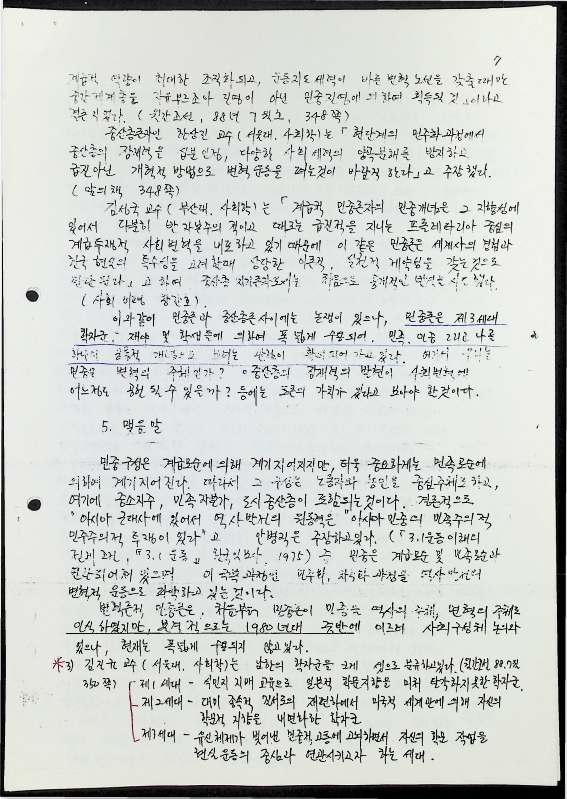 7
계급적 역량이 최대한 조직화되고, 운동지도세력이 바른 변혁노선을 갖출때만
중간제계층을 자유부르조아 진영이 아닌 민중진영에 의하여 획득될 것」이라고
(월간조선, 88년 7월호, 348쪽)
중산층론자인 한상진 교수(서울대. 사회학)는「현단계의 민주화과정에서
중산층의 잠재력을 십분 인정, 다양한 사회세력의 양극분해를 방지하고
급진아닌 개혁적 방법으로 변혁운동을 펴는것이 바람직하다」고 주장했다.
(앞의책 348쪽)
김성국 교수(부산대. 사회학)는「계급적 민중론자의 민중개념은 그 지향성에
있어서 다분히 반자본주의적이고 때로는 급진적을 지니는 프롤레타리아 중심의
계급투쟁적 사회변혁을 내포하고 있기 때문에 이 같은 민중론은 세계사의 경험과
한국 현실의 특수성을 고려할때 상당한 이론적, 실천적 제약성을 갖는것으로
판단된다」고 하여 중산층
(사회비평 창간호).
이와같이 민중론과 중산층론사이에는 논쟁이 있으나, 민중론은 제3세대
학자군, 재야 및 학생들에 의하여 폭넓게 수용되어, 민족, 민중 그리고 나른
있다. 여기서
민중은 변혁의 주체인가? 중산층의 잠재력의 발현이 사회변혁에
어느정도 공헌 될 수 있을까? 등에는 토론의 가치가 있다고 보아야 할것이다.
5. 맺음말
민중구성은 계급모순에 의해 계기지어지지만, 더욱 중요하게는 민족모순에
의하여 계기지어진다. 따라서 그 구성은 노동자와 농민을 중심주체로 하고,
여기에 중소지주, 민족자본가, 도시중산층이 포함되는것이다. 결론적으로
"아시아 근대사에 있어서 역사발전의 원동력은 "아시아 민중의 민족주의적
민주주의적 투쟁이 있다"고 안병직은 주장하고있다. (「3.1운동이래의
『3.1운동』 한국일보사, 1975) 즉 민중은 계급모순 및 민족모순과
있으며 이 극복과정인 민주화, 자주화 과정을 역사발전의
변혁적 운동으로 파악하고 있는 것이다.
변혁론적 민중론은, 처음부터 민중론이 민중을 역사의 주체, 변혁의 주체로
인식하였지만, 본격적으로는 1980년대 중반에 이르러 사회구성체 논의와
있으나, 현재는 폭넓게 수용되지 않고있다.
※3) 김진균 교수(서울대. 사회학)는 남한의 학자군을 크게 셋으로 분류하고있다. (월간조선 88.7호
350쪽) - 제1세대 - 식민지 지배 교육으로 일본적 학문지향을 미처 탈각하지못한 학자군.
제2세대 - 대미 종속적 질서로의 재편하에서 미국적 세계관에 의해 자신의
학문적 지향을 내면화한 학자군
제3세대 - 유신체제가 빚어낸 민중적 고통에 고뇌하면서 자신의 학문 작업을
현실운동의 중심과 연관시키고자 하는 세대.